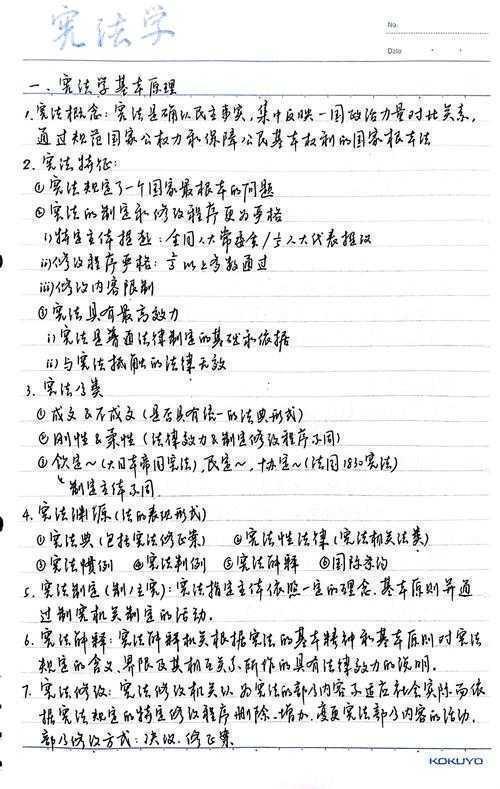 宪法学
No.
Date
一、宪法学基本原理
1.宪法概念:宪法是确认民主事实,集中反映一国政治力量对比关系,
通过规范国家公权力和保障公民基本权利的国家根本法
2. 宪法特征:
①宪法规定了一个国家最根本的问题
②宪法的制定和修改程序更为严格
i)特定主体提起:全国人大常委会/ 人大代表提议
ii)修改程序严格: 以上多数通过
iii)修改内容限制
③宪法具有最高效力
i)宪法是普通法律制定的基础和依据
ii)与宪法抵触的法律无效
3. 宪法分类
①成文&不成文(是否具有统一的法典形式)
②刚性&柔性(法律效力&制定修改程序不同)
③钦定~(大日本帝国宪法),民定~,协定~(法国1830宪法)
制定主体不同
4. 宪法渊源(法的表现形式)
①宪法典(包括宪法修正案) ②宪法性法律(宪法相关法类)
③宪法惯例 ④宪法判例 ⑤宪法解释 ⑥国际条约
5. 宪法制定(制/立宪):宪法指定主体依照一定的理念、基本原则并通
过制宪机关制定的活动.
6. 宪法解释:宪法解释机关根据宪法的基本精神和基本原则对宪法
规定的含义、界限及其相互关系所作的具有法律效力的说明.
7. 宪法修改:宪法修改机关认为宪法的部分内容不适应社会实际而依
据宪法规定的特定修改程序删除、增加、变更宪法部分内容的活动.
部分修改方式:决议、修正案.
KOKUYO